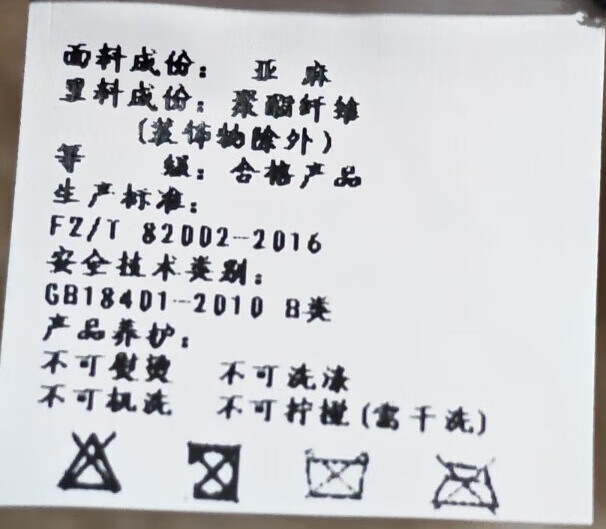 面料成份： 亚 麻
里料成份：聚酯纤维
(装饰物除外)
等 级：合格产品
生产标准：
FZ/T 82002-2016
安全技术类别：
GB18401-2010 B类
产品养护：
不可熨烫 不可洗涤
不可机洗 不可拧搅(需干洗)